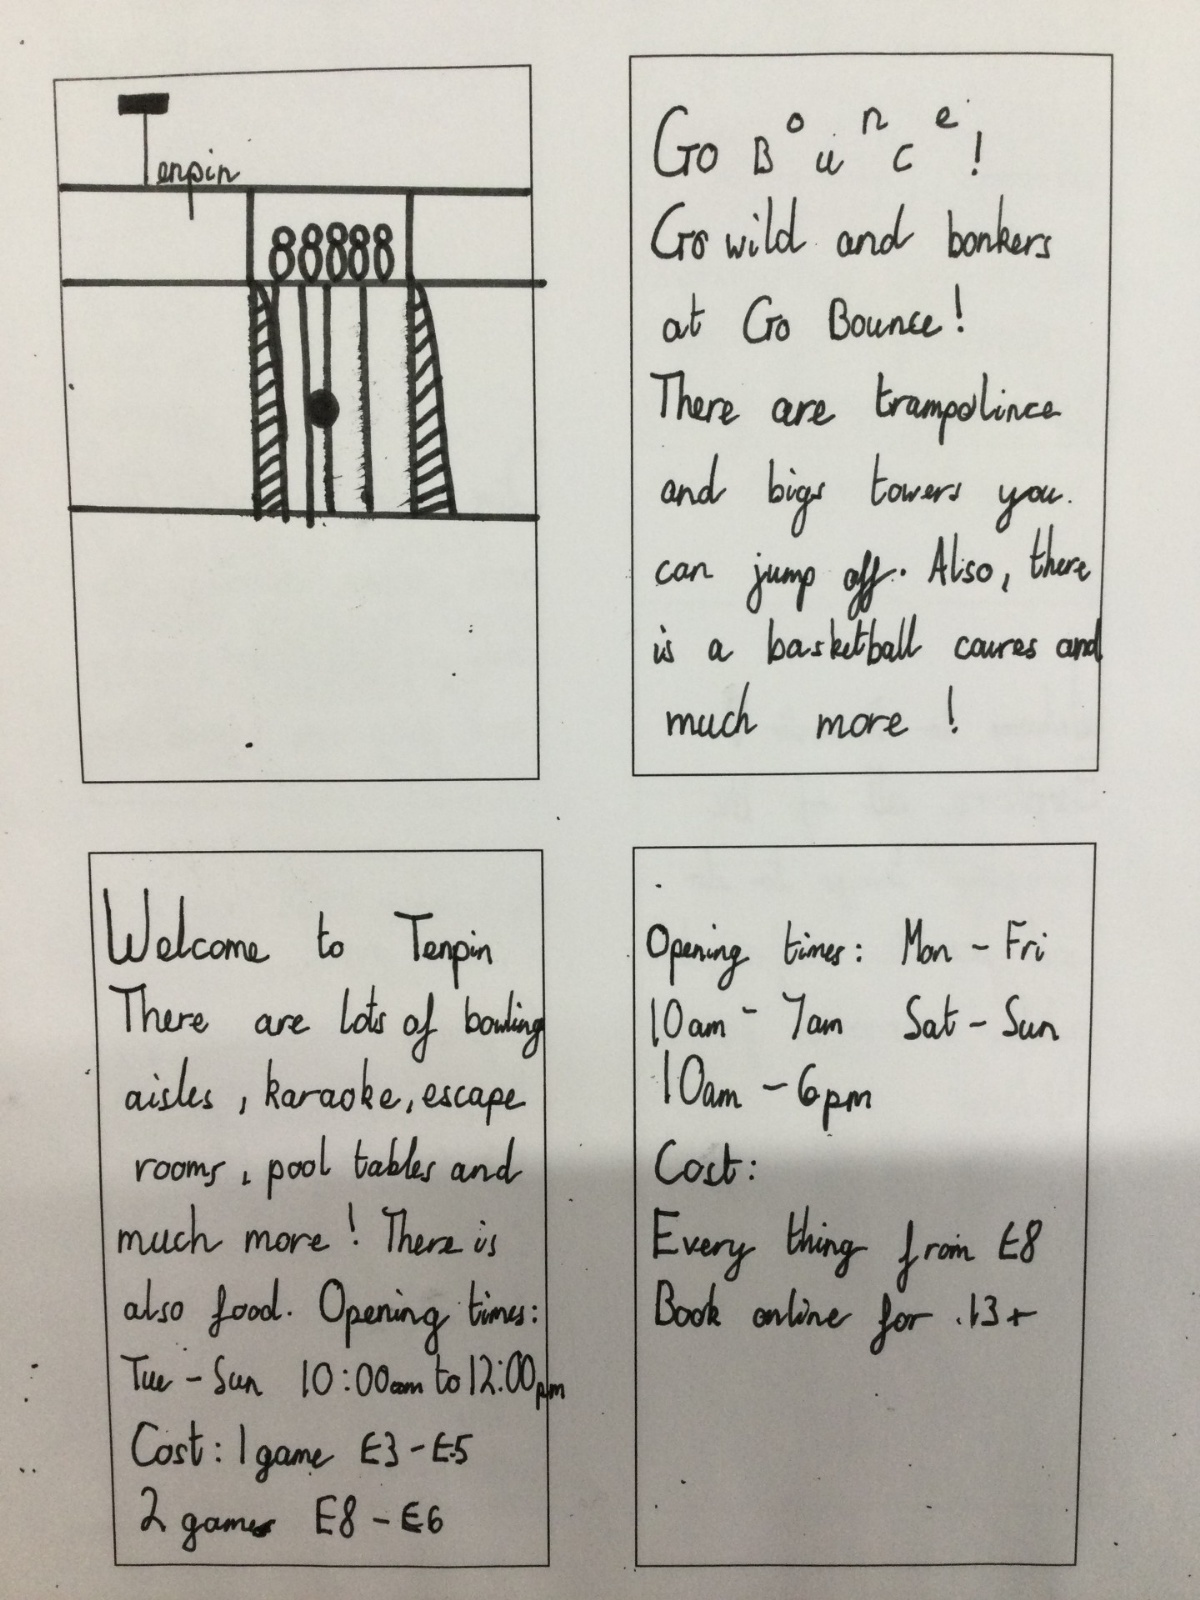 Tenpin
88888
Go Bounce!
Go wild and bonkers
at Go Bounce!
There are trampolince
and bigs towers you.
can jump off. Also, there
is a basketball coures and
much more !
Welcome to Tenpin
There are lots of bowling
aisles , karaoke, escape
rooms , pool tables and
much more ! There is
also food. Opening times:
Tue - Sun 10:00am to 12:00pm
Cost: 1 game £3 - £5
2 games £8 - £6
Opening times: Mon - Fri
10am - 7am Sat - Sun
10am - 6pm
Cost:
Every thing from £8
Book online for .13+